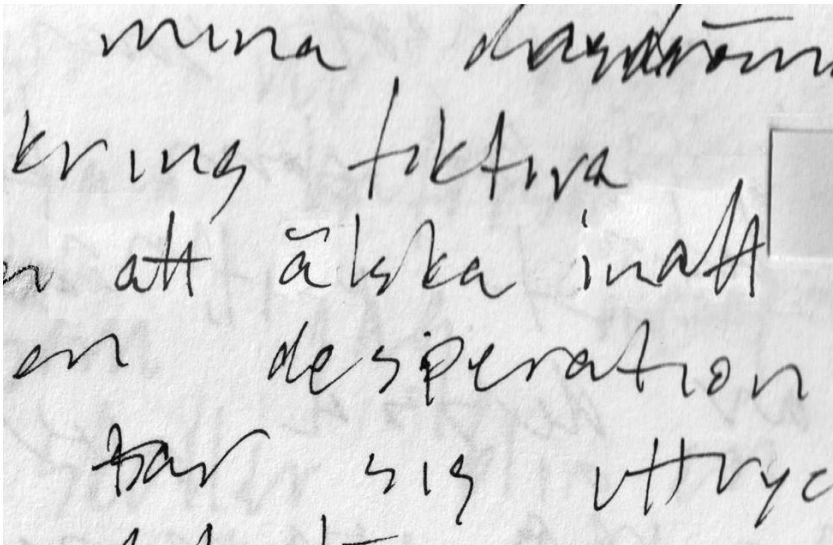 mina dagdröm
kring fiktiva
n att älska inatt
en desperation
tar sig uttryc